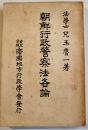 法學士 兒玉魯一著
朝鮮行政警察法各論
帝國地方行政學會發行